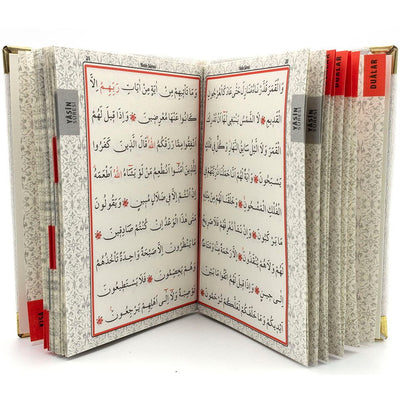 وَالْقَمَرَ قَدَّرْنَاهُ مَنَازِلَ حَتّٰى عَادَ كَالْعُرْجُونِ
الْقَدِيمِ ❋ لَا الشَّمْسُ يَنْبَغِى لَهَٓا اَنْ تُدْرِكَ
الْقَمَرَ وَلَا الَّيْلُ سَابِقُ النَّهَارِ وَكُلٌّ فِى فَلَكٍ
يَسْبَحُونَ ❋ وَاٰيَةٌ لَهُمْ اَنَّا حَمَلْنَا ذُرِّيَّتَهُمْ فِى
الْفُلْكِ الْمَشْحُونِ ❋ وَخَلَقْنَا لَهُمْ مِنْ مِثْلِهِ
مَا يَرْكَبُونَ ❋ وَاِنْ نَشَأْ نُغْرِقْهُمْ فَلَا صَرِيخَ
لَهُمْ وَلَا هُمْ يُنْقَذُونَ ❋ اِلَّا رَحْمَةً مِنَّا وَمَتَاعًا
اِلٰى حِينٍ ❋ وَاِذَا قِيلَ لَهُمُ اتَّقُوا مَا بَيْنَ
اَيْدِيكُمْ وَمَا خَلْفَكُمْ لَعَلَّكُمْ تُرْحَمُونَ
وَمَا تَأْتِيهِمْ مِنْ اٰيَةٍ مِنْ اٰيَاتِ رَبِّهِمْ اِلَّا
كَانُوا عَنْهَا مُعْرِضِينَ ❋ وَاِذَا قِيلَ لَهُمْ
اَنْفِقُوا مِمَّا رَزَقَكُمُ اللّٰهُ قَالَ الَّذِينَ كَفَرُوا
لِلَّذِينَ اٰمَنُٓوا اَنُطْعِمُ مَنْ لَوْ يَشَٓاءُ اللّٰهُ اَطْعَمَهُ
اِنْ اَنْتُمْ اِلَّا فِى ضَلَالٍ مُبِينٍ ❋ وَيَقُولُونَ
مَتٰى هٰذَا الْوَعْدُ اِنْ كُنْتُمْ صَادِقِينَ ❋
مَا يَنْظُرُونَ اِلَّا صَيْحَةً وَاحِدَةً تَأْخُذُهُمْ
وَهُمْ يَخِصِّمُونَ ❋ فَلَا يَسْتَطِيعُونَ
تَوْصِيَةً وَلَٓا اِلٰٓى اَهْلِهِمْ يَرْجِعُونَ
YÂSÎN
YÂSÎN
DUÂLAR
DUÂLAR